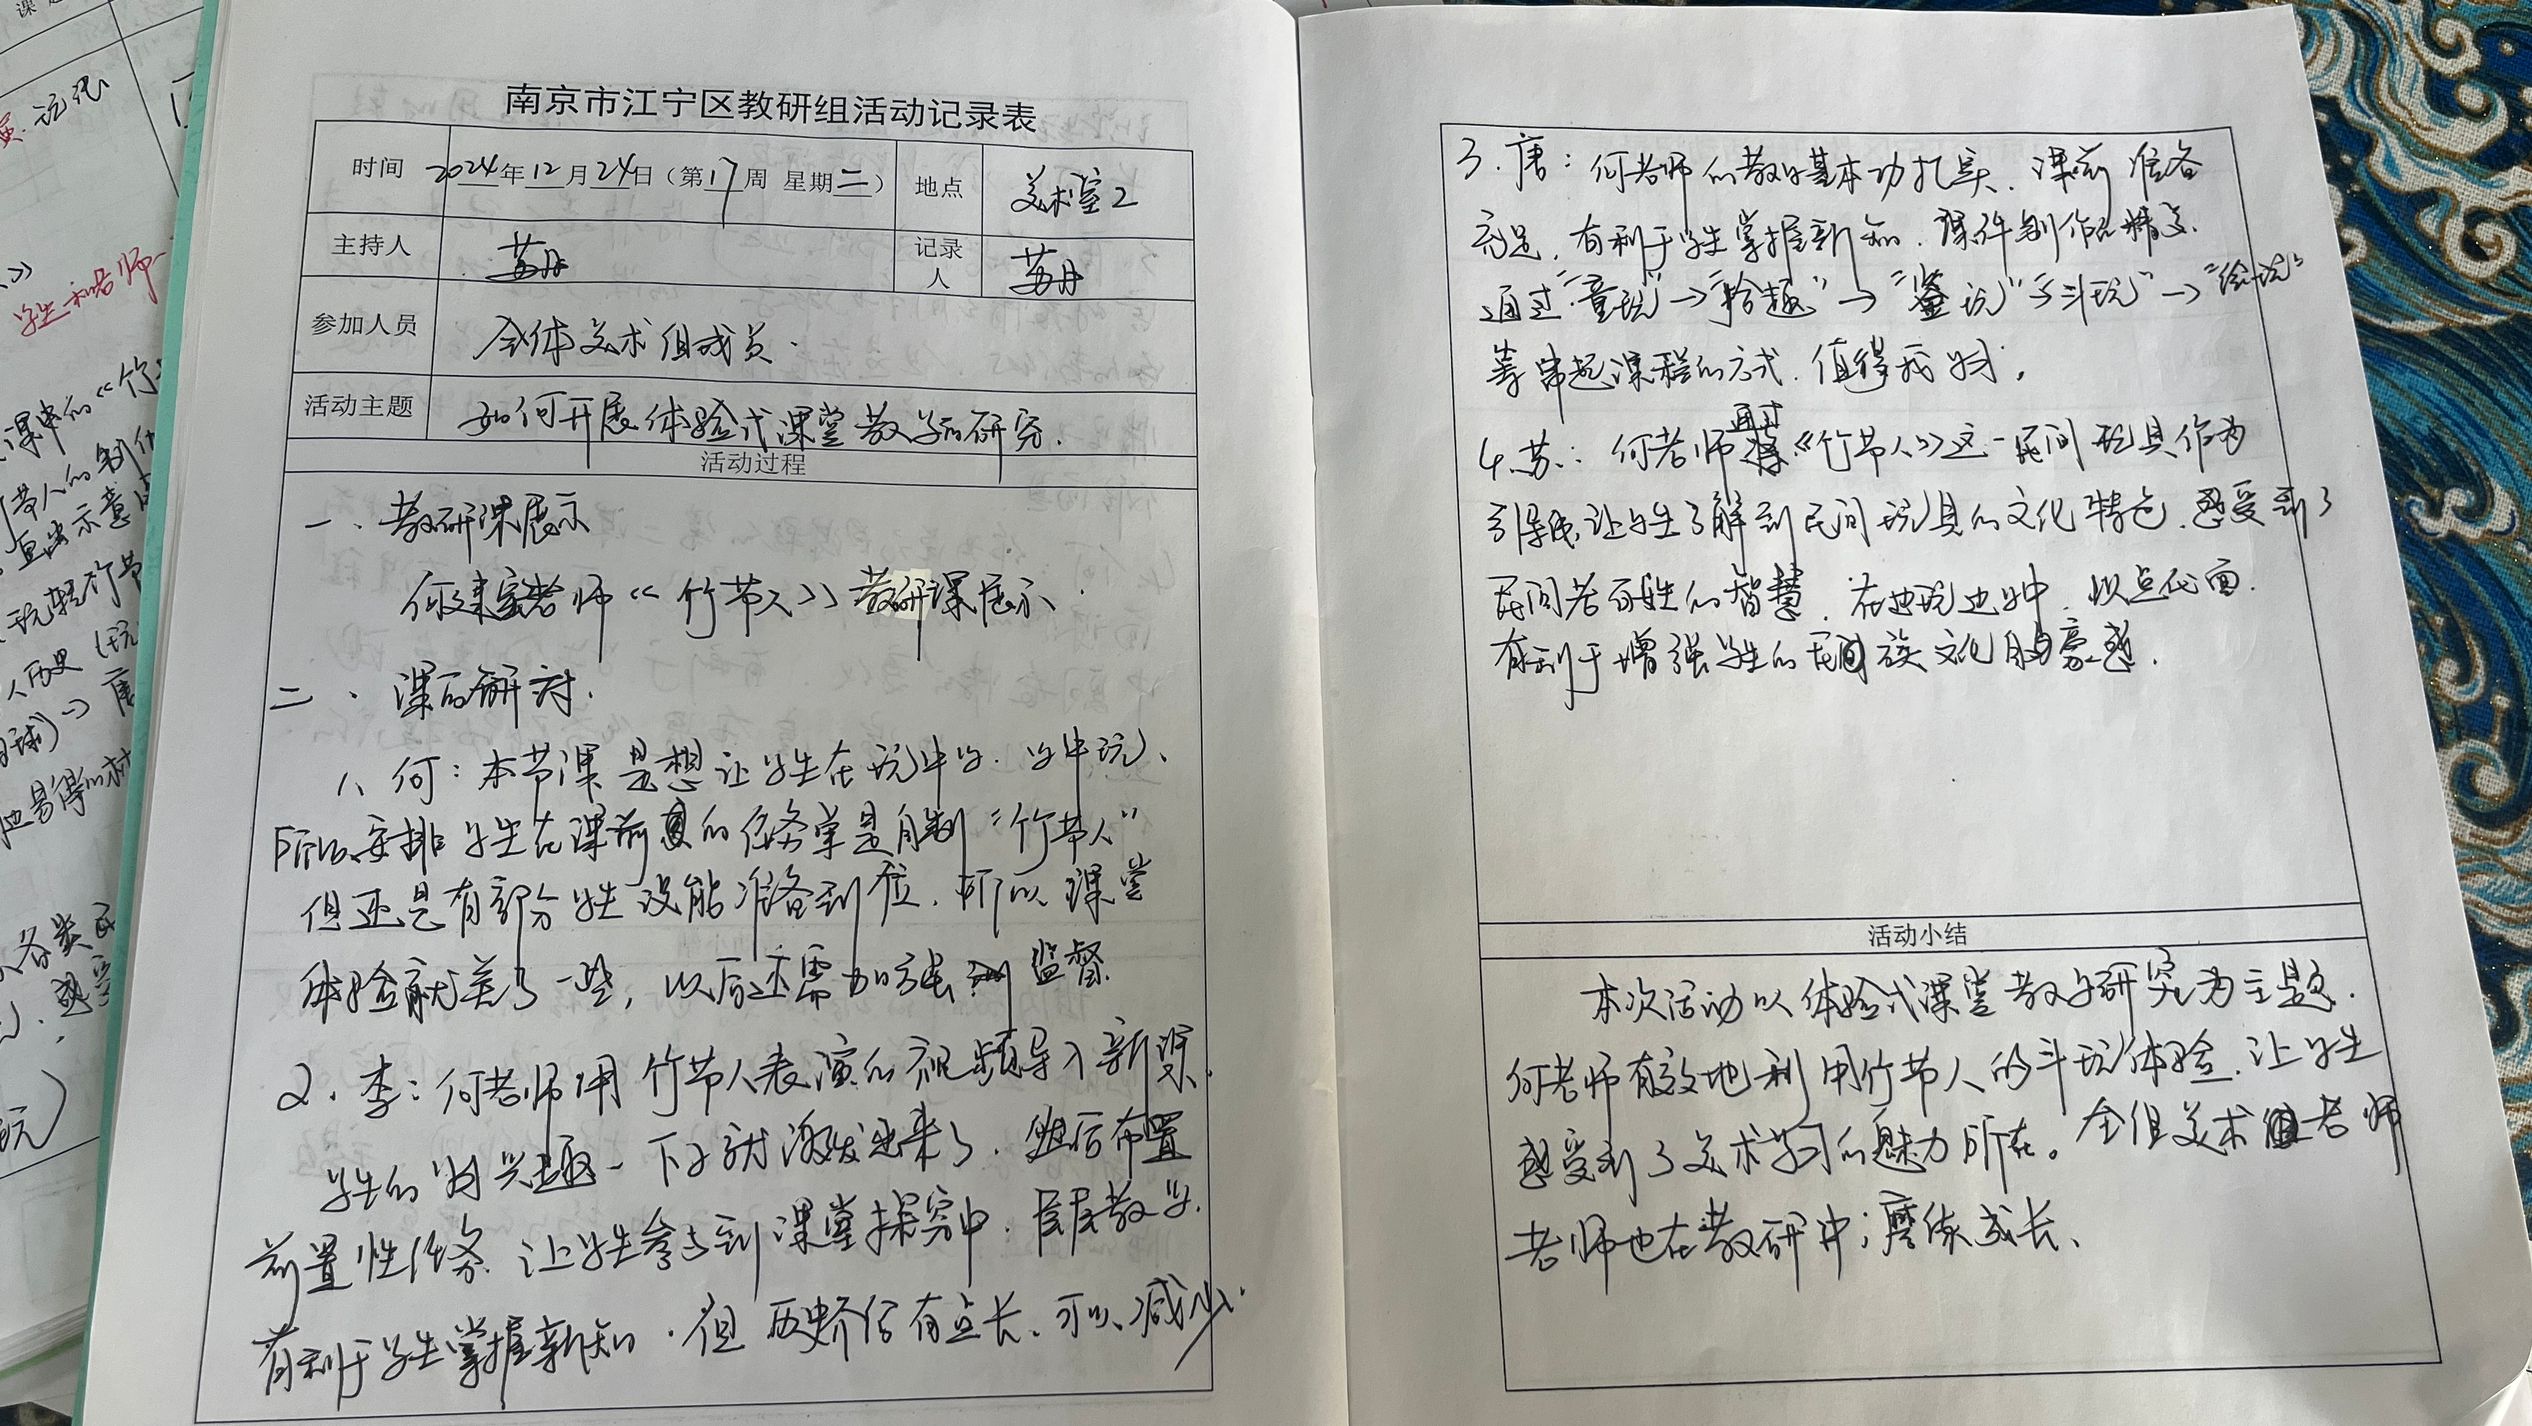 南京市江宁区教研组活动记录表
时间 2024年12月24日（第17周 星期二） 地点 美术室2
主持人 苏丹 记录人 苏丹
参加人员 全体美术组成员.
活动主题 如何开展体验式课堂教学的研究.
活动过程
一、教研课展示
何建宝老师《竹节人》教研课展示.
二、课后研讨.
1、何：本节课是想让学生在玩中学.学中玩、
所以安排学生在课前的任务单是自制“竹节人”
但还是有部分学生没能准备到位.所以课堂
体验就差了一些，以后还需加强监督
2、李：何老师用竹节人表演的视频导入新课.
学生的学习兴趣一下子就激发起来了.继后布置
前置性任务.让学生参与到课堂探究中.层层教学.
有利于学生掌握新知.但历史介绍有点长、可以减少.
3.唐：何老师的教学基本功扎实.课前准备
充足.有利于学生掌握新知.课件制作的精美.
通过“童玩”→“拾趣”→“鉴玩”→“斗玩”→“绘玩”
等串起课程的方式.值得我学习.
4.苏：何老师通过《竹节人》这一民间玩具作为
引导线.让学生了解到民间玩具的文化特色.感受到了
民间老百姓的智慧.在边玩边学中.以点代面.
有利于增强学生的民族文化自豪感.
活动小结
本次活动以体验式课堂教学研究为主题.
何老师有效地利用竹节人的斗玩体验.让学生
感受到了美术学习的魅力所在。全组美术组老师
老师也在教研中;磨练成长、